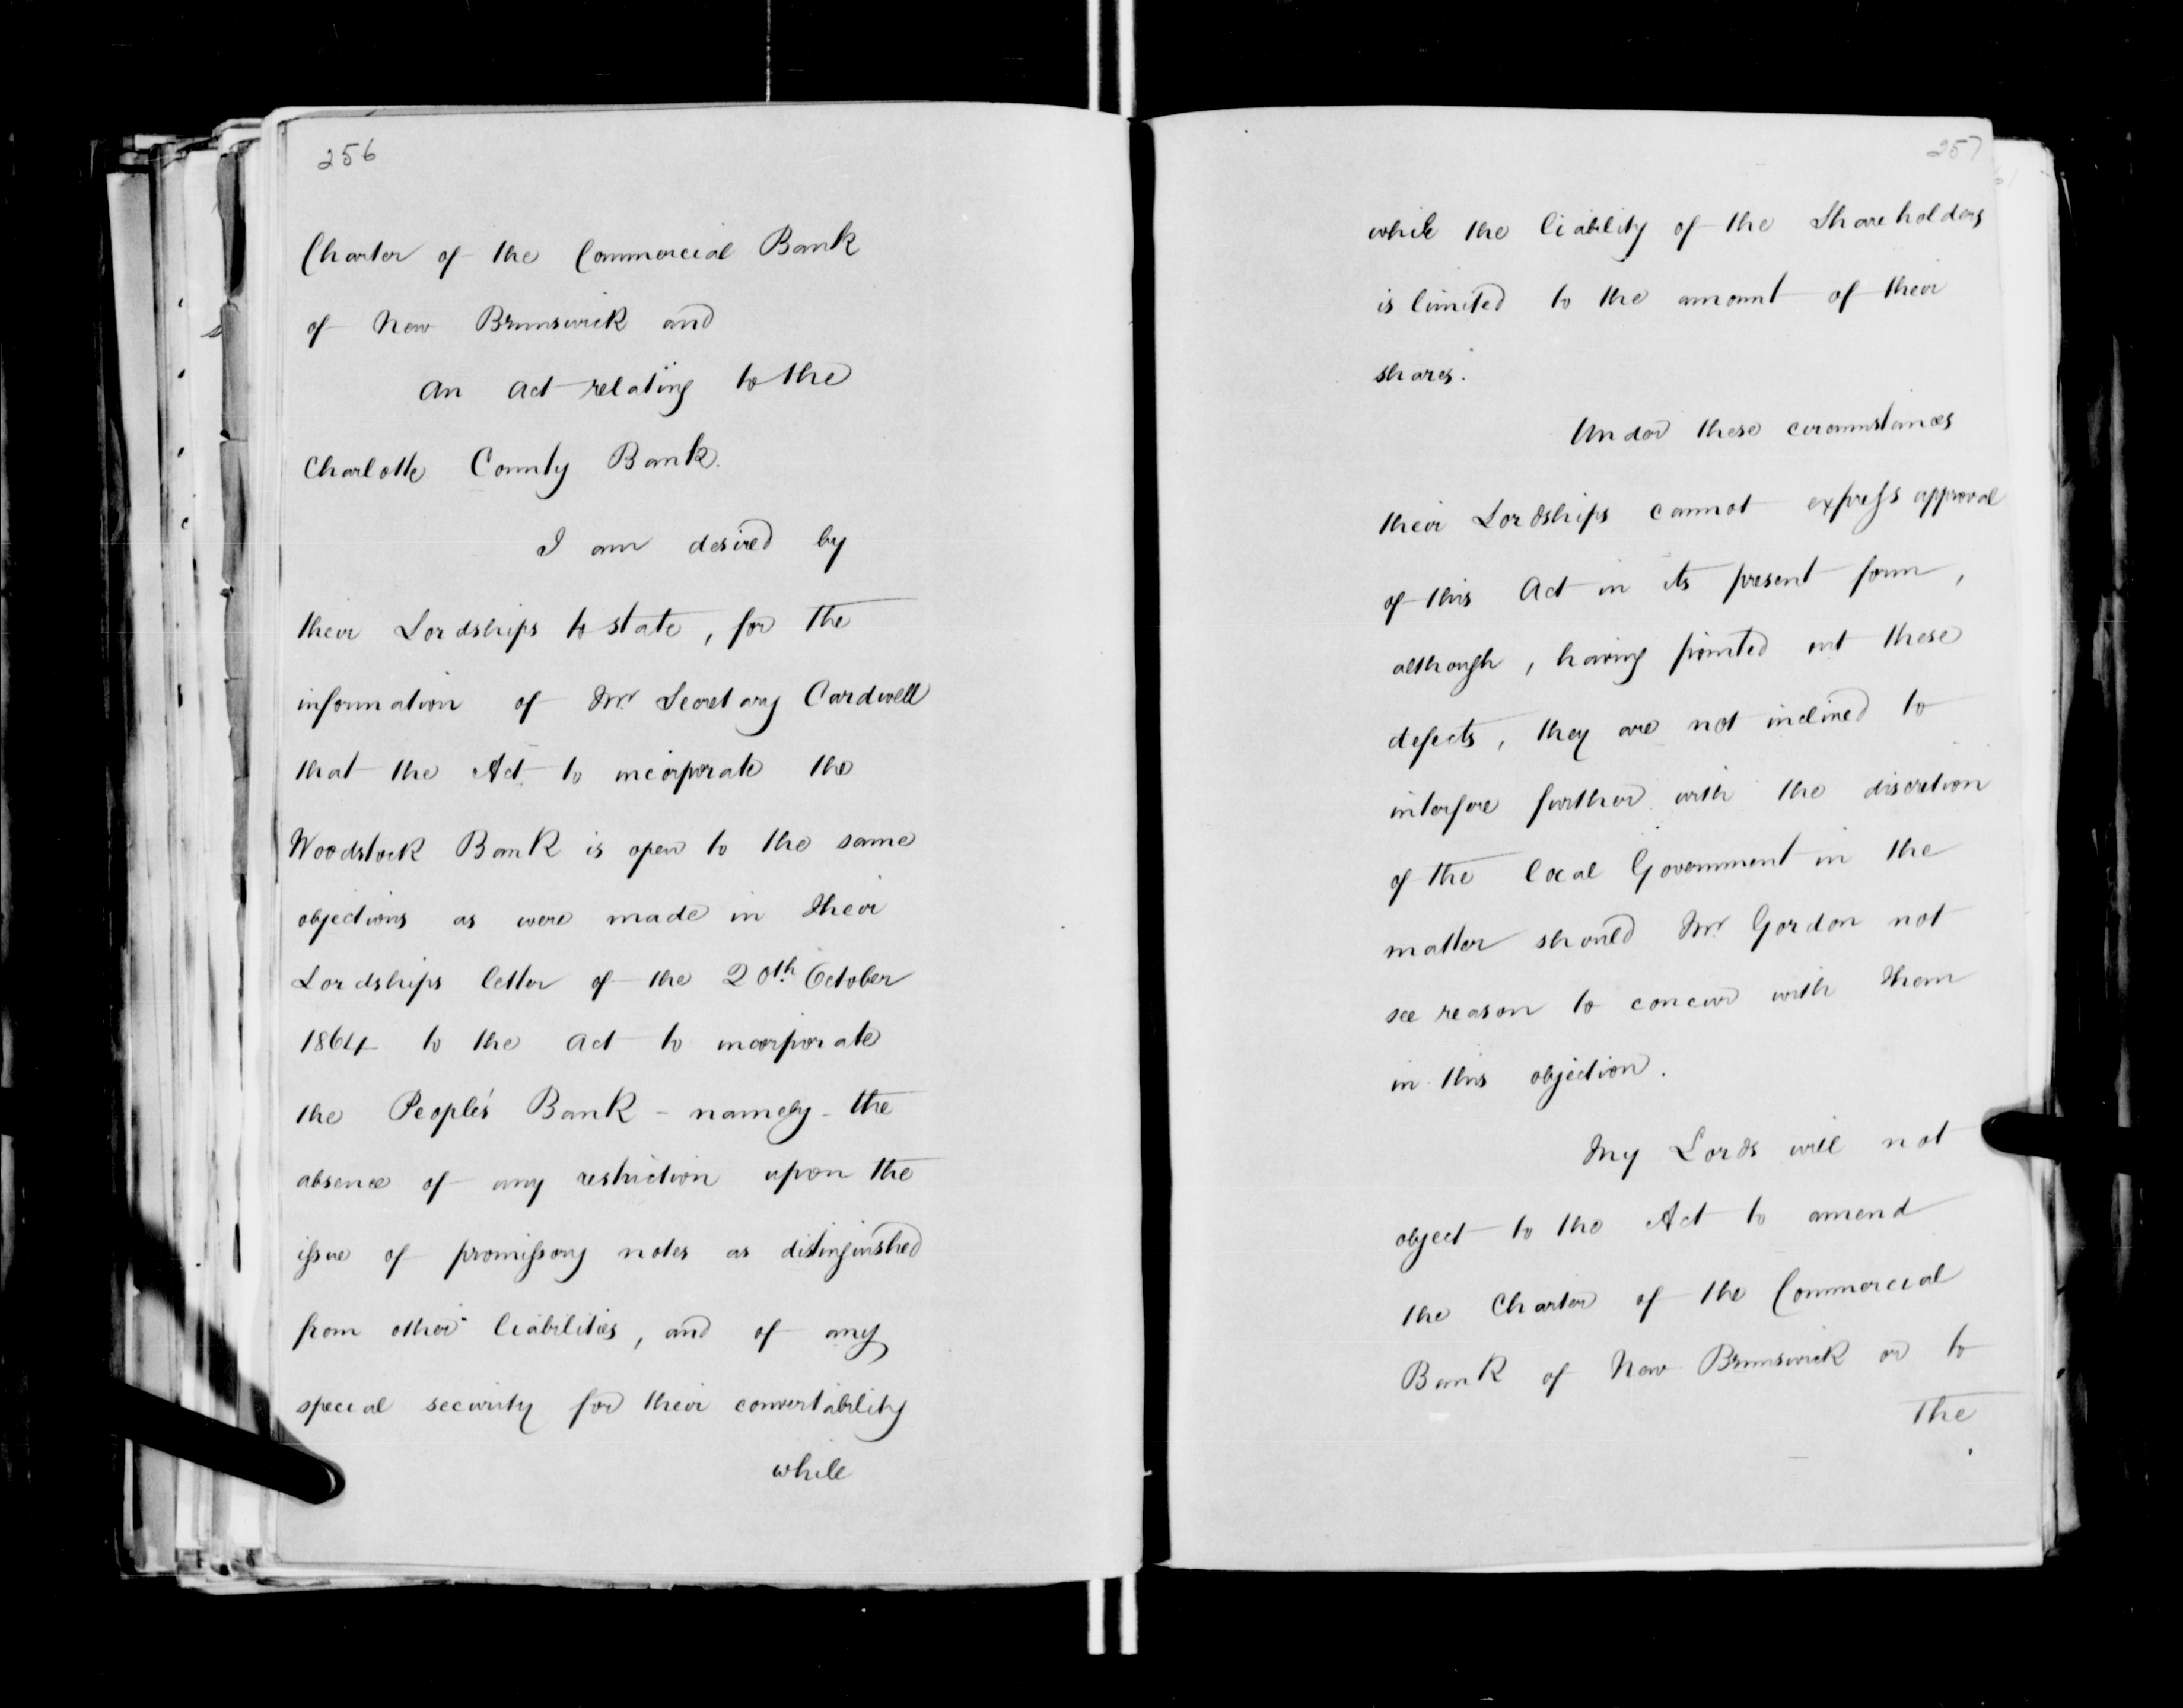 256
Charter of the Commercial Bank
of New Brunswick and
An Act relating to the
Charlotte County Bank.
I am desired by
their Lordships to state, for the
information of Mr Secretary Cardwell
that the Act to incorporate the
Woodstock Bank is open to the same
objections as were made in their
Lordships letter of the 20th October
1864 to the Act to incorporate
the People's Bank - namely - the
absence of any restriction upon the
issue of promissory notes as distinguished
from other liabilities, and of any
special security for their convertability
while
257
while the liability of the Shareholders
is limited to the amount of their
shares.
Under these circumstances
their Lordships cannot express approval
of this Act in its present form,
although, having pointed out these
defects, they are not inclined to
interfere further with the discretion
of the local Government in the
matter should Mr Gordon not
see reason to concur with them
in this objection.
My Lords will not
object to the Act to amend
the Charter of the Commercial
Bank of New Brunswick or to
The